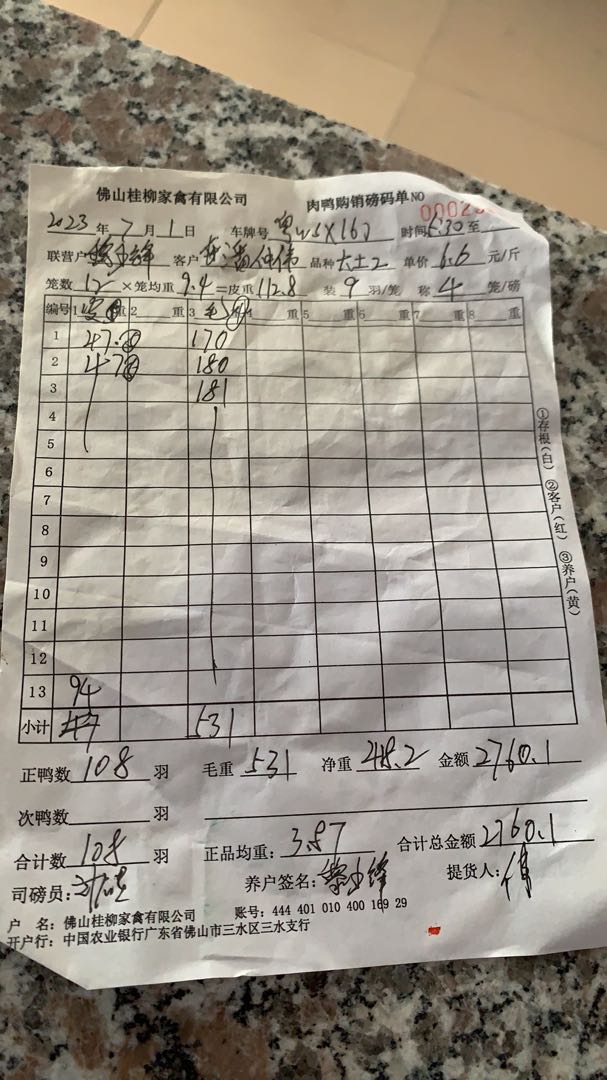 佛山桂柳家禽有限公司 肉鸭购销磅码单 NO 0002
2023 年 7 月 1 日 车牌号 时间 5:30 至
联营户 客户 品种 大土2 单价 6.6 元/斤
笼数 12 ×笼均重 9.4 =皮重 112.8 装 9 羽/笼 称 4 笼/磅
编号 1 重 2 重 3 毛 重 4 重 5 重 6 重 7 重 8 重
1 47.0 170
2 47.0 180
3 181
4
5
6
7
8
9
10
11
12
13 94
小计 531
①存根(白) ②客户(红) ③养户(黄)
正鸭数 108 羽 毛重 531 净重 418.2 金额 2760.1
次鸭数 羽
合计数 108 羽 正品均重: 3.87 合计总金额 2760.1
司磅员: 养户签名: 提货人:
户 名: 佛山桂柳家禽有限公司 账号: 444 401 010 400 169 29
开户行: 中国农业银行广东省佛山市三水区三水支行